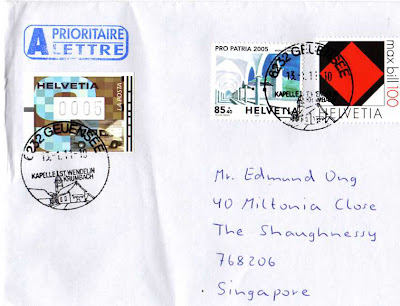 A PRIORITAIRE
LETTRE
HELVETIA
0005
LA POSTA
6232 GEUENSEE
KAPELLE ST. WENDELIN
KRUMBACH
PRO PATRIA 2005
85
HELVETIA
6232 GEUENSEE
KAPELLE ST. WENDELIN
KRUMBACH
max bill 100
HELVETIA
Mr. Edmund Ung
40 Miltonia Close
The Shaughnessy
768206
Singapore